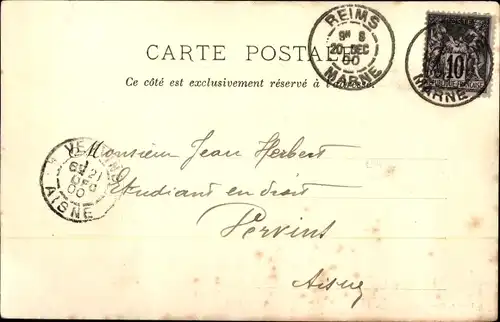 REIMS
9H S
20 DEC
00
MARNE
POSTES
10
RÉPUBLIQUE FRANÇAISE
MARNE
CARTE POSTALE
Ce côté est exclusivement réservé à
VERVINS
6H 21
DEC
00
AISNE
Monsieur Jean Herbert
Etudiant en droit
Vervins
Aisne